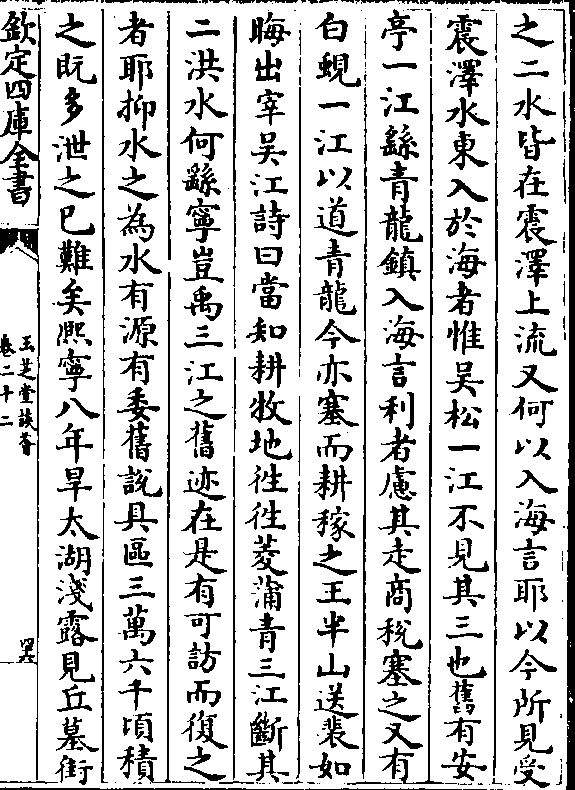 之二水皆在震澤上流又何以入海言耶以今所見受
震澤水東入於海者惟吳松一江不見其三也舊有安
亭一江繇青龍鎮入海言利者慮其走商稅塞之又有
白蜆一江以道青龍今亦塞而耕稼之王半山送裴如
晦出宰吳江詩曰當知耕牧地徃徃菱蒲青三江斷其
二洪水何繇寧豈禹三江之舊迹在是有可訪而復之
者耶抑水之為水有源有委舊說具區三萬六千頃積
之既多泄之巳難矣熈寧八年旱太湖淺露見丘墓街
欽定四庫全書
玉芝堂談薈
卷二十二